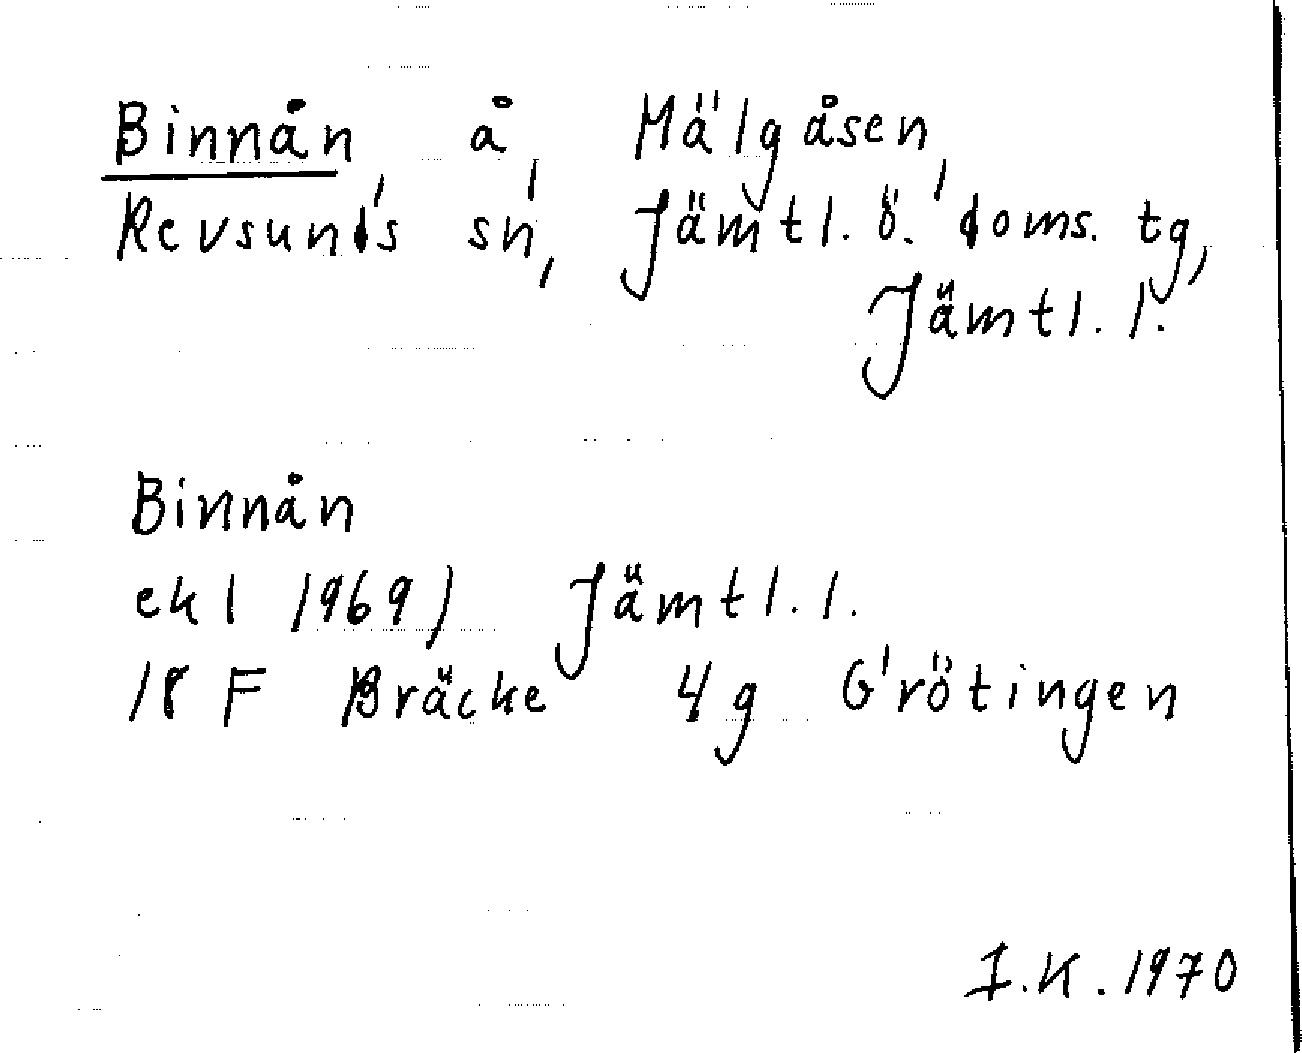 Binnån, å, Mälgåsen,
Revsunds sn, Jämtl. ö. doms. tg,
Jämtl. l.
Binnån
ekl 1969) Jämtl. l.
18 F Bräcke 4g Grötingen
I.K. 1970